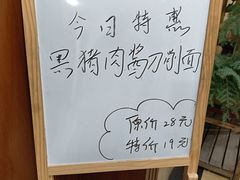 今日特惠
黑猪肉酱刀削面
原价28元
特价19元